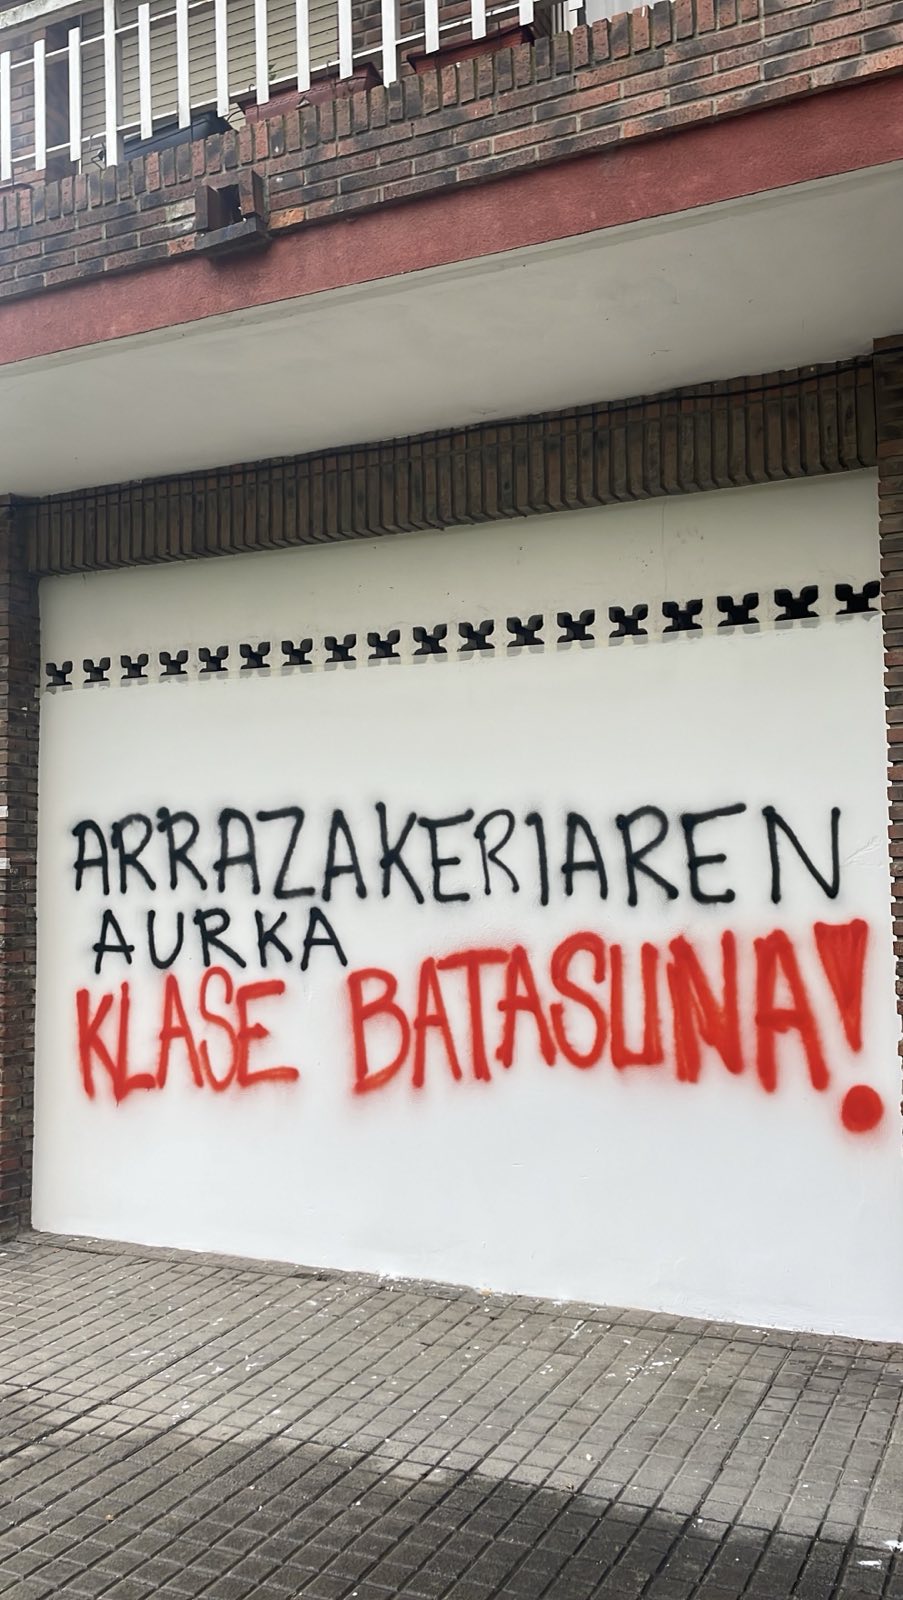 ARRAZAKERIAREN
AURKA
KLASE BATASUNA!